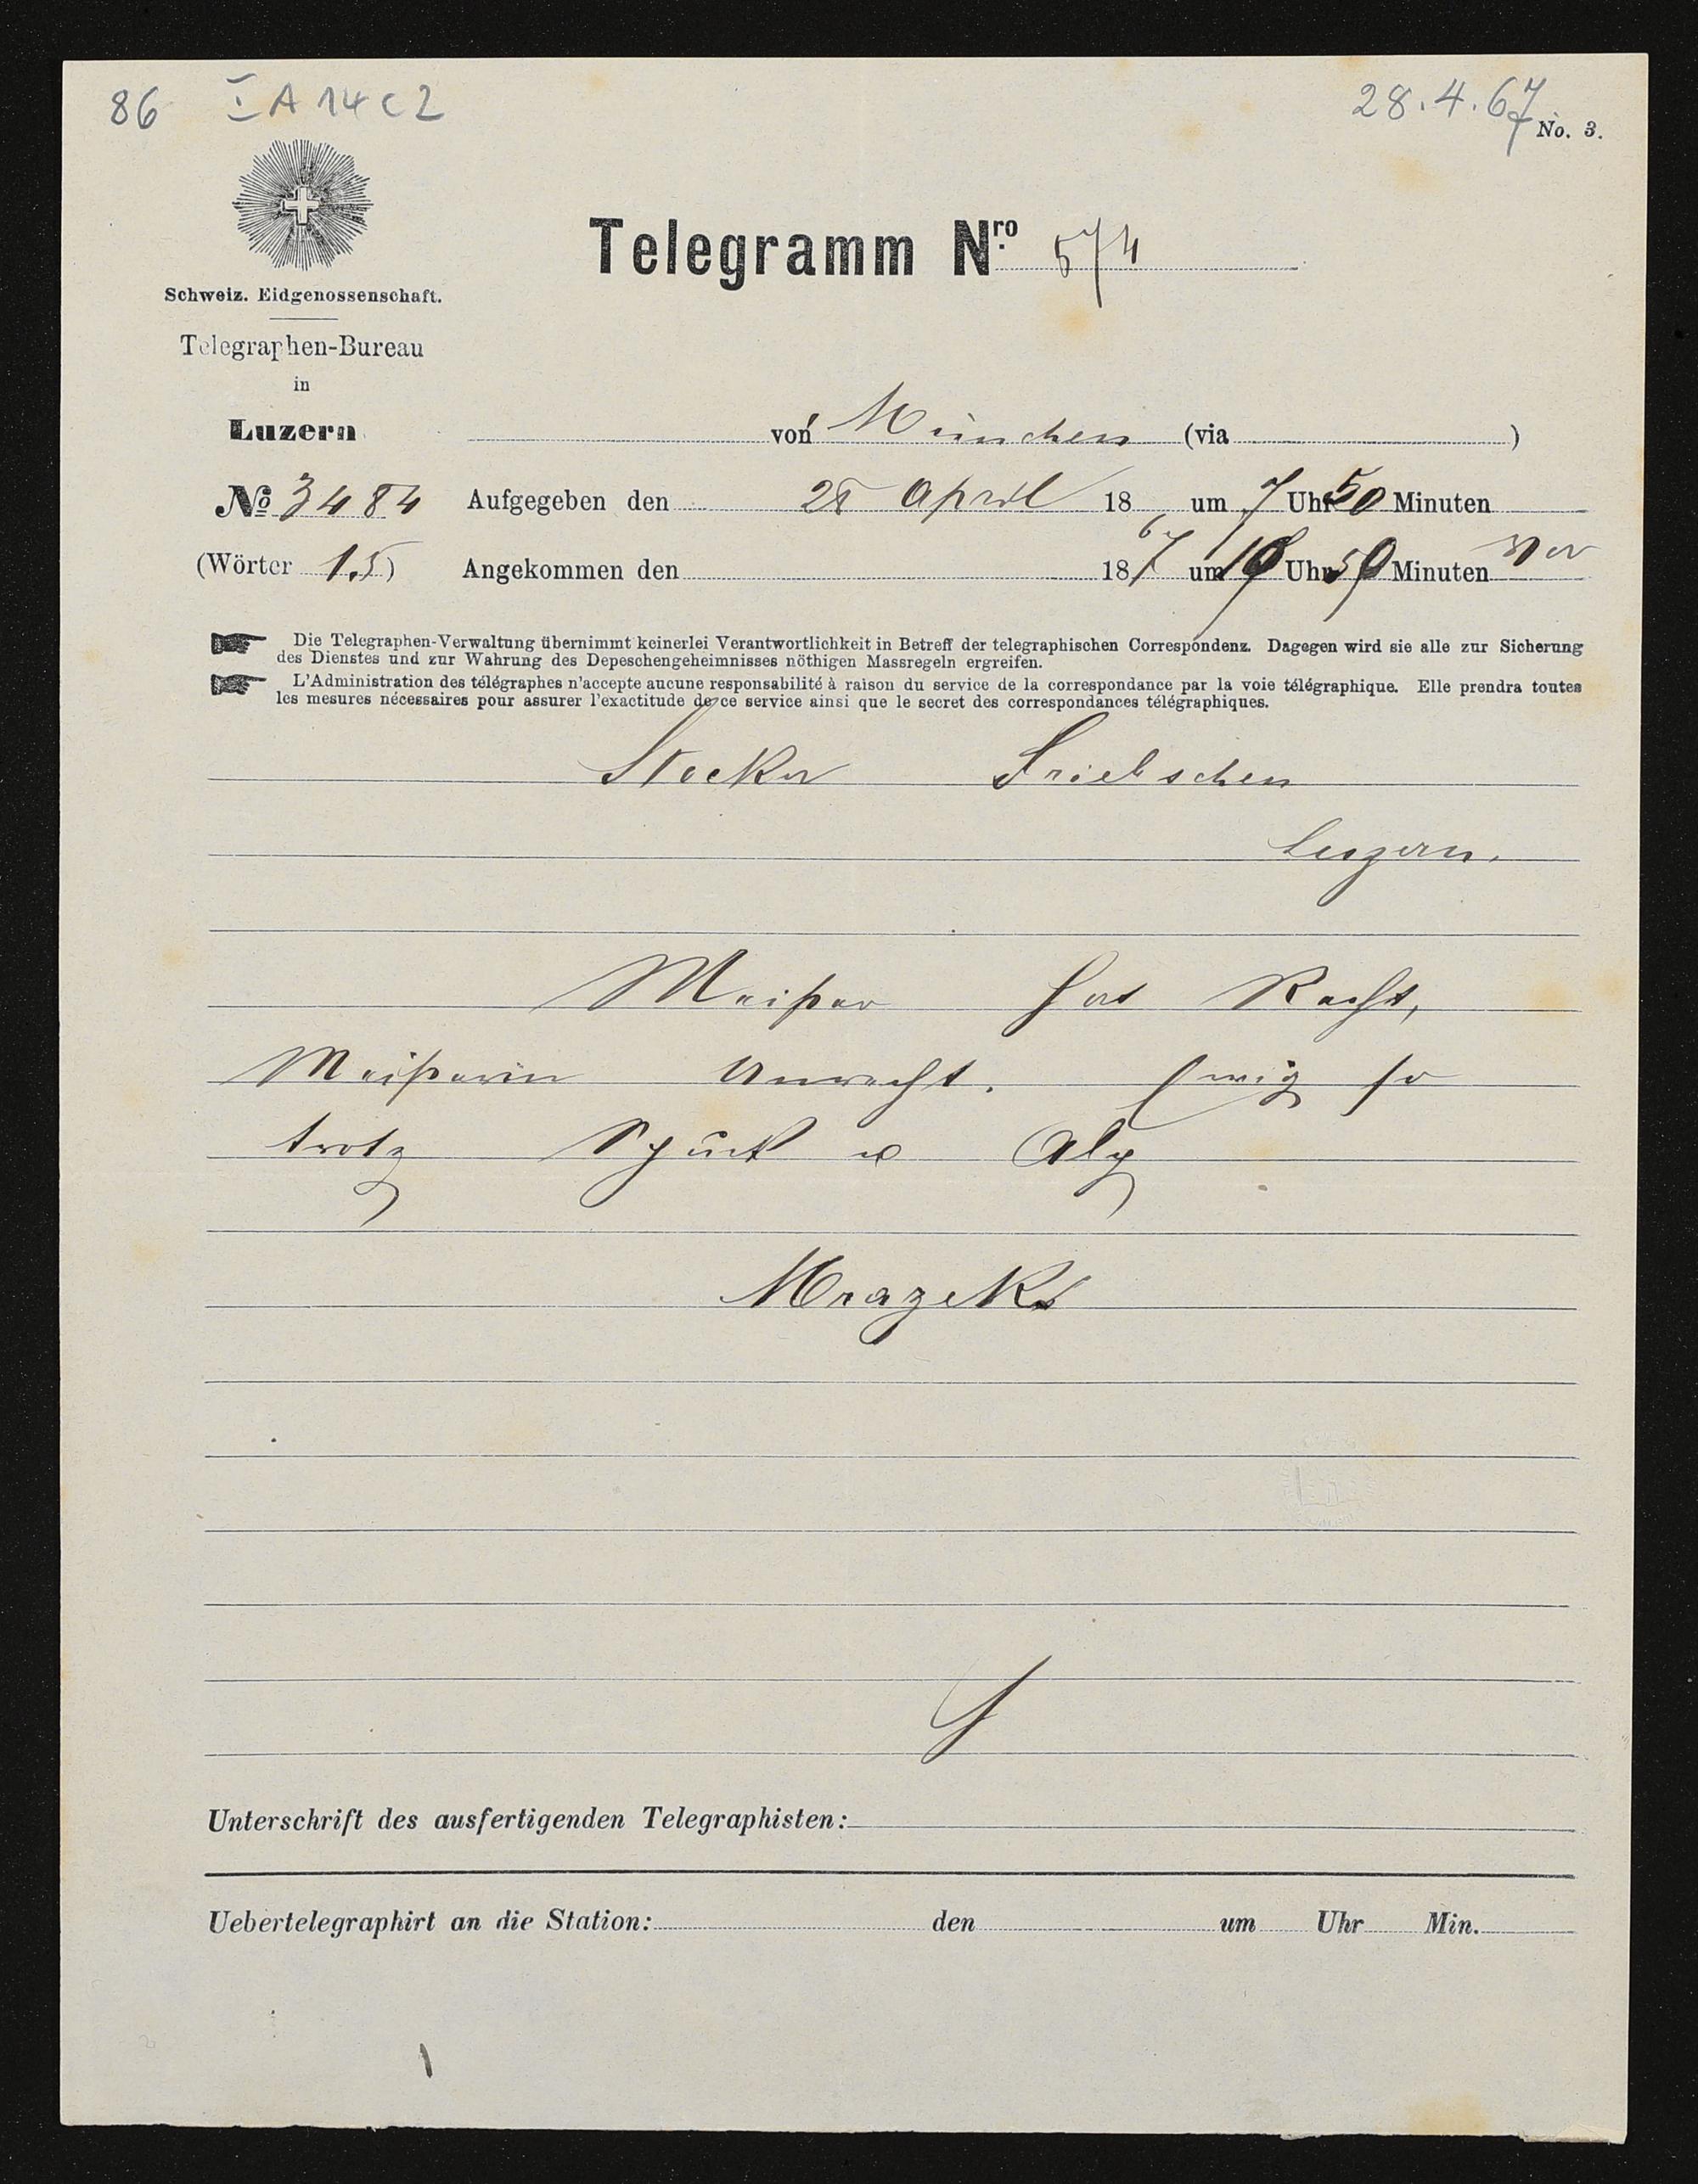 86 I A 14 c 2
28.4.67
No. 3.
Telegramm Nro. 574
Schweiz. Eidgenossenschaft.
Telegraphen-Bureau
in
Luzern
von München (via )
No 3484 Aufgegeben den 28 April 18 um 7 Uhr 50 Minuten
(Wörter 15) Angekommen den 1867 um Uhr Minuten
Die Telegraphen-Verwaltung übernimmt keinerlei Verantwortlichkeit in Betreff der telegraphischen Correspondenz. Dagegen wird sie alle zur Sicherung
des Dienstes und zur Wahrung des Depeschengeheimnisses nöthigen Massregeln ergreifen.
L'Administration des télégraphes n'accepte aucune responsabilité à raison du service de la correspondance par la voie télégraphique. Elle prendra toutes
les mesures nécessaires pour assurer l'exactitude de ce service ainsi que le secret des correspondances télégraphiques.
Stocker Triebschen
Luzern.
Meister hat Recht,
Meisterin Unrecht. Ewig so
trotz Spuck u Alp
Mrazeks
Unterschrift des ausfertigenden Telegraphisten:
Uebertelegraphirt an die Station: den um Uhr Min.